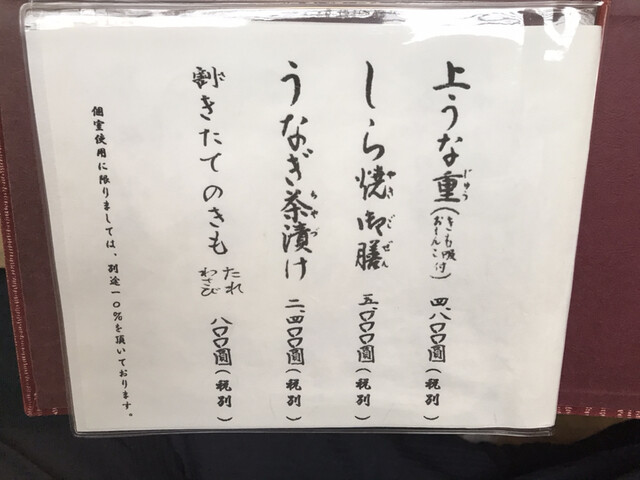 上うな重(きも吸おしんこ付) 四、八〇〇圓(税別)
じゅう
しら焼御膳 五、〇〇〇圓(税別)
やき ごぜん
うなぎ茶漬け 二、四〇〇圓(税別)
ちゃづ
割きたてのきも たれ わさび 八〇〇圓(税別)
個室使用に限りましては、別途一〇%を頂いております。